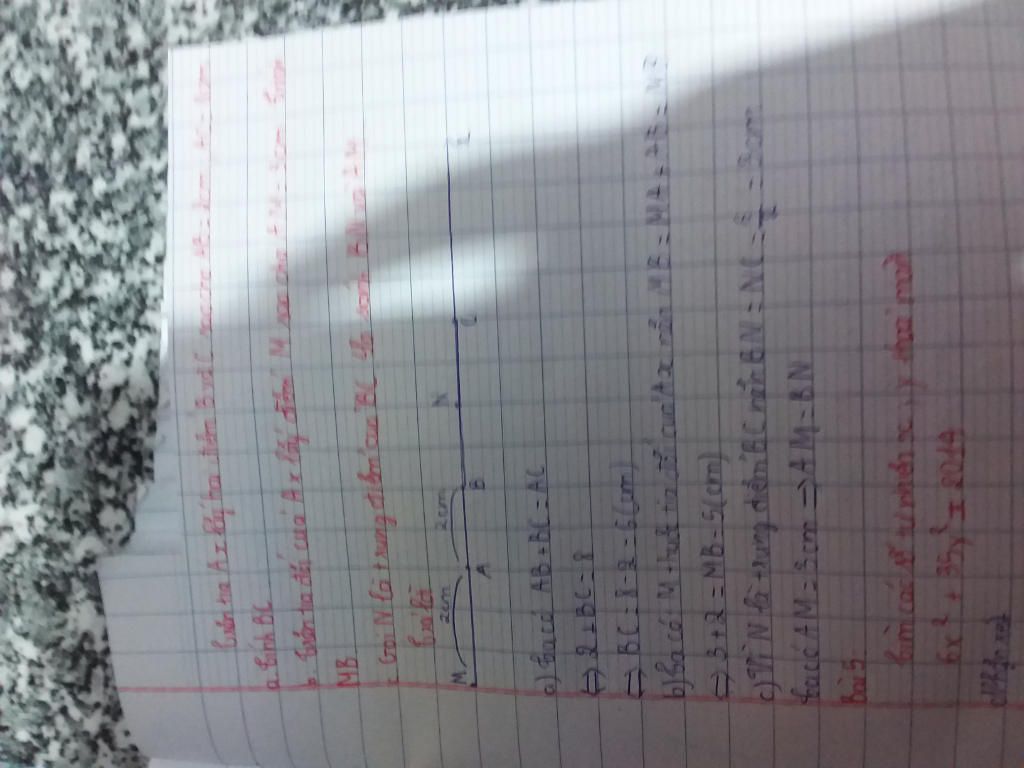 Trên tia Ax lấy hai điểm B và C sao cho AB = 2cm, AC = 8cm
a. Tính BC
b Trên tia đối của Ax lấy điểm M sao cho AM = 3cm
MB
c Gọi N là trung điểm của BC So sánh BN và AM
Trả lời
M 2cm A 2cm B N C x
a) Ta có AB + BC = AC
<=> 2 + BC = 8
<=> BC = 8 - 2 = 6 (cm)
b) Ta có M thuộc tia đối của Ax nên MB = MA + AB =
<=> 3 + 2 = MB = 5 (cm)
c) Vì N là trung điểm BC nên BN = NC = 6/2 = 3cm
Ta có AM = 3cm => AM = BN
Bài 5
Tìm các số tự nhiên x, y thoả mãn
6x² + 35y² = 2014